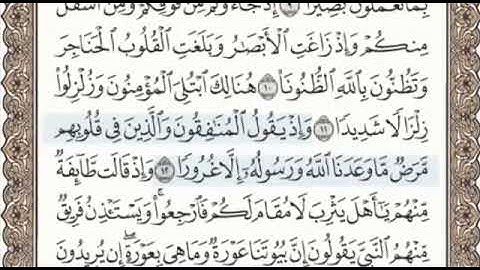 بِمَا تَعْمَلُونَ بَصِيرًا ۝٩ إِذْ جَآءُوكُم مِّن فَوْقِكُمْ وَمِنْ أَسْفَلَ
مِنكُمْ وَإِذْ زَاغَتِ ٱلْأَبْصَٰرُ وَبَلَغَتِ ٱلْقُلُوبُ ٱلْحَنَاجِرَ
وَتَظُنُّونَ بِٱللَّهِ ٱلظُّنُونَا۠ ۝١٠ هُنَالِكَ ٱبْتُلِىَ ٱلْمُؤْمِنُونَ وَزُلْزِلُوا۟
زِلْزَالًا شَدِيدًا ۝١١ وَإِذْ يَقُولُ ٱلْمُنَٰفِقُونَ وَٱلَّذِينَ فِى قُلُوبِهِم
مَّرَضٌ مَّا وَعَدَنَا ٱللَّهُ وَرَسُولُهُۥٓ إِلَّا غُرُورًا ۝١٢ وَإِذْ قَالَت طَّآئِفَةٌ
مِّنْهُمْ يَٰٓأَهْلَ يَثْرِبَ لَا مُقَامَ لَكُمْ فَٱرْجِعُوا۟ ۚ وَيَسْتَـْٔذِنُ فَرِيقٌ
مِّنْهُمُ ٱلنَّبِىَّ يَقُولُونَ إِنَّ بُيُوتَنَا عَوْرَةٌ وَمَا هِىَ بِعَوْرَةٍ ۖ إِن يُرِيدُونَ